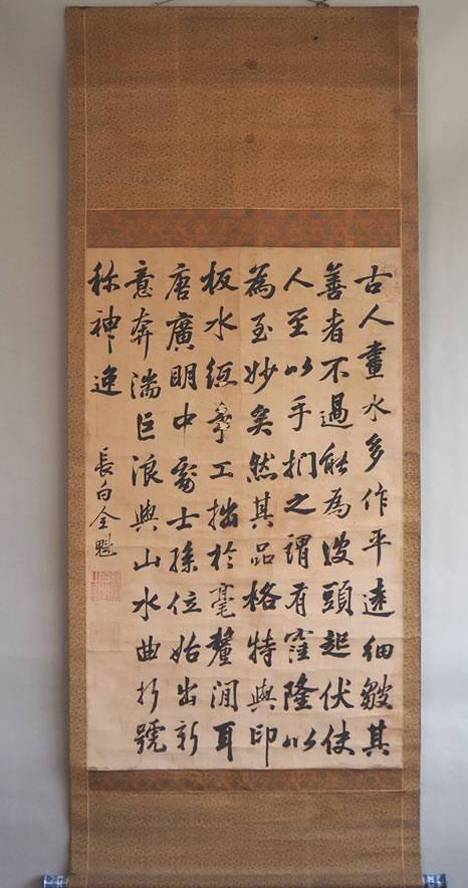 古人畫水多作平遠細皺其
善者不過能為波頭起伏使
人至以手捫之謂有窪隆以
為至妙矣然其品格特與印
板水紙爭工拙於毫釐間耳
唐廣明中處士孫位始出新
意奔湍巨浪與山水曲折號
称神逸
長白全魁